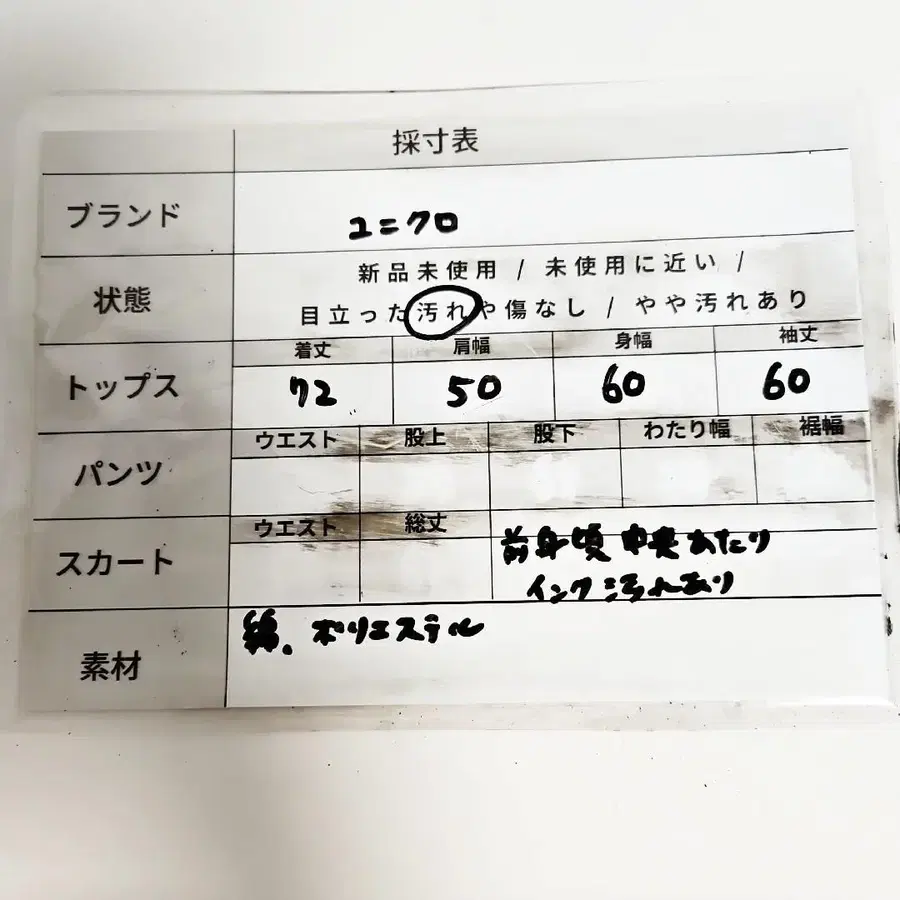 採寸表
ブランド
ユニクロ
状態
新品未使用 / 未使用に近い /
目立った汚れや傷なし / やや汚れあり
トップス
着丈 肩幅 身幅 袖丈
72 50 60 60
パンツ
ウエスト 股上 股下 わたり幅 裾幅
スカート
ウエスト 総丈
前身頃 中央あたり
インク汚れあり
素材
綿、ポリエステル